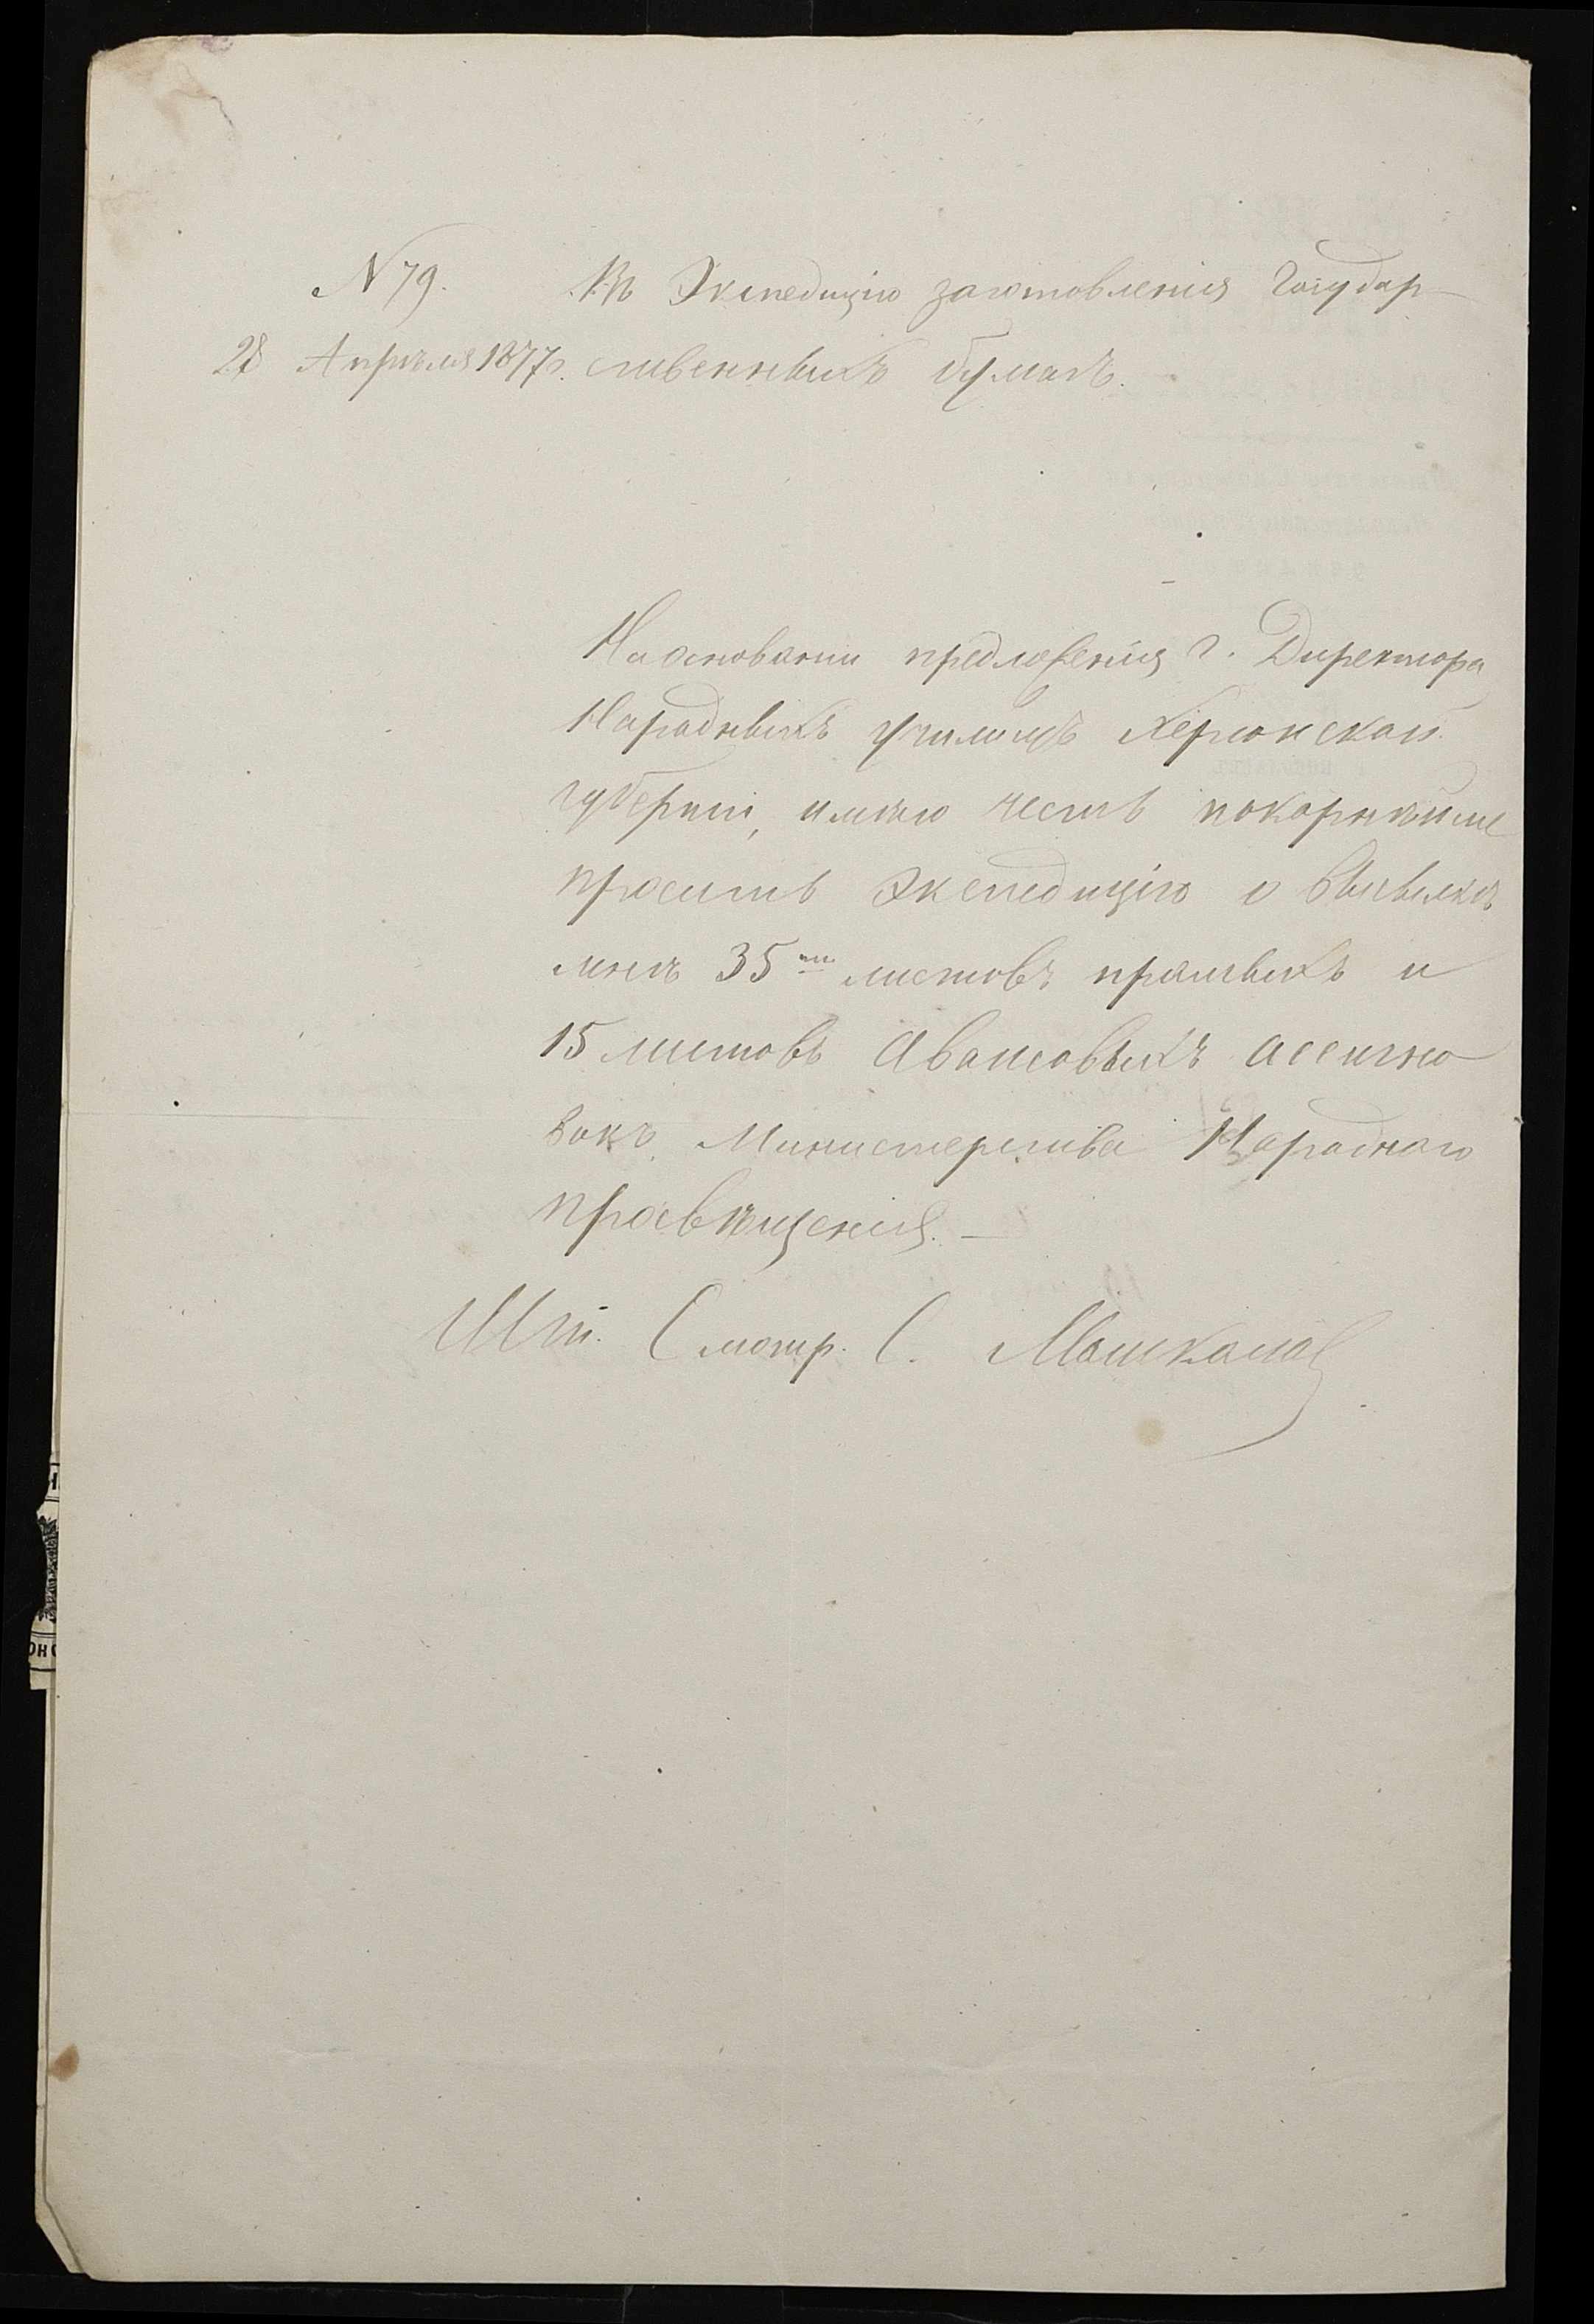 N 79.
28 Апрѣля 1877 г.
Въ Экспедицію заготовленія Государ-
ственныхъ бумагъ.
На основаніи предложенія г. Директора
Народныхъ училищъ Херсонской
губерніи, имѣю честь покорнѣйше
просить Экспедицію о высылкѣ
мнѣ 35ти листовъ прямыхъ и
15 листовъ Авансовыхъ ассигно-
вокъ Министерства Народнаго
просвѣщенія. —
Шт. Смотр. С.
ОНО